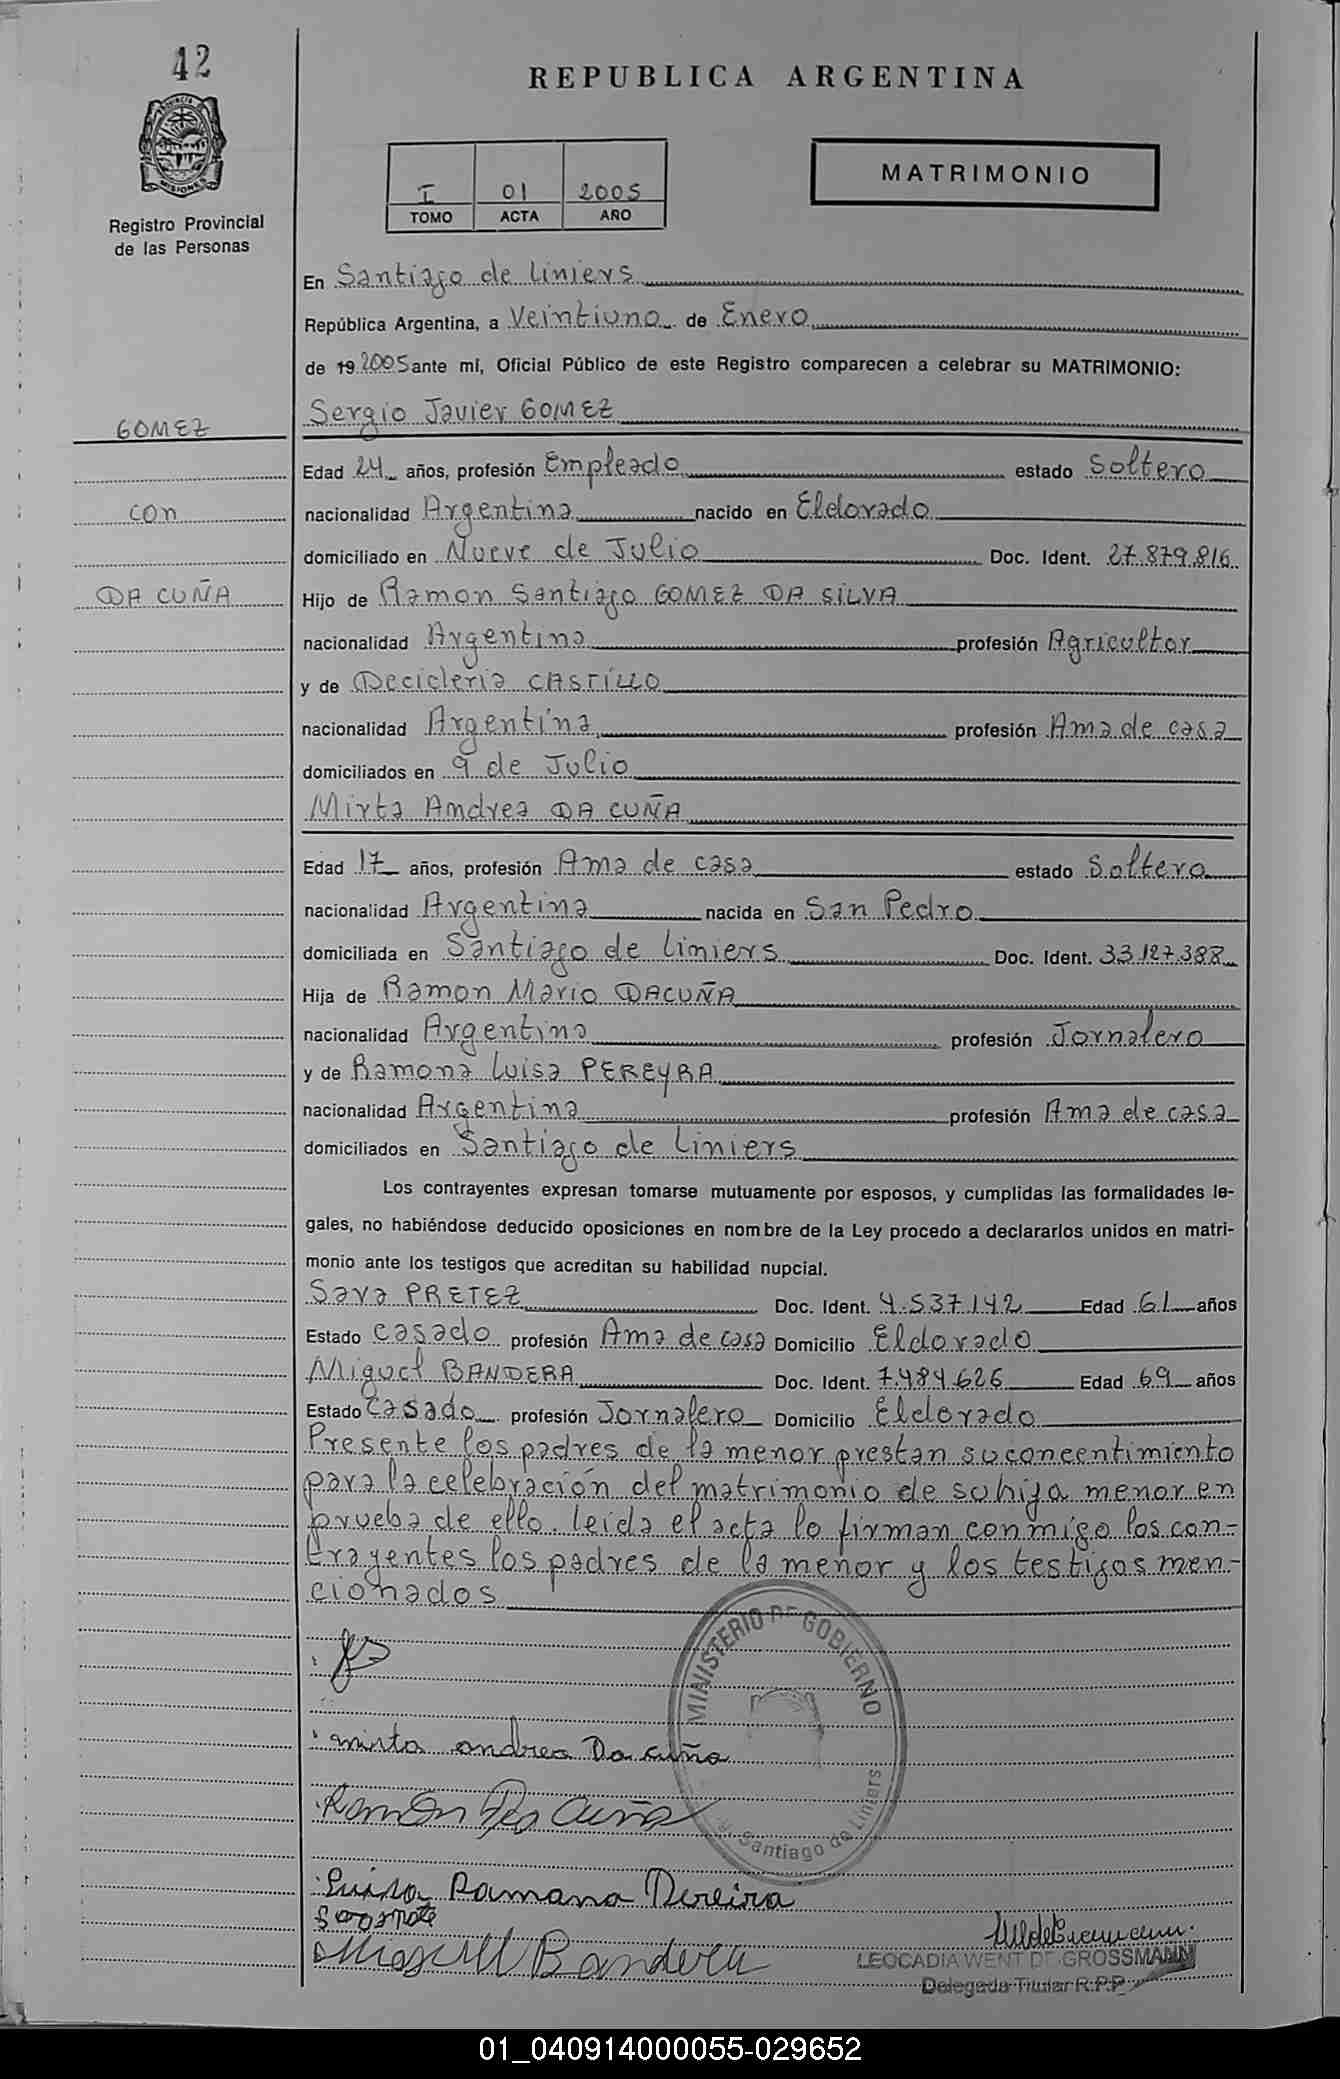 42
REPUBLICA ARGENTINA
PROVINCIA DE
MISIONES
Registro Provincial
de las Personas
I 01 2005
TOMO ACTA AÑO
MATRIMONIO
En Santiago de Liniers
República Argentina, a Veintiuno de Enero
de 19 2005 ante mí, Oficial Público de este Registro comparecen a celebrar su MATRIMONIO:
GOMEZ
Sergio Javier GOMEZ
Edad 24 años, profesión Empleado estado Soltero
con
nacionalidad Argentina nacido en Eldorado
domiciliado en Nueve de Julio Doc. Ident. 27.879.816
DA CUÑA
Hijo de Ramon Santiago GOMEZ DA SILVA
nacionalidad Argentina profesión Agricultor
y de Decicleria CASTILLO
nacionalidad Argentina profesión Ama de casa
domiciliados en 9 de Julio
Mirta Andrea DA CUÑA
Edad 17 años, profesión Ama de casa estado Soltera
nacionalidad Argentina nacida en San Pedro
domiciliada en Santiago de Liniers Doc. Ident. 33.127.388
Hija de Ramon Mario DACUÑA
nacionalidad Argentina profesión Jornalero
y de Ramona Luisa PEREYRA
nacionalidad Argentina profesión Ama de casa
domiciliados en Santiago de Liniers
Los contrayentes expresan tomarse mutuamente por esposos, y cumplidas las formalidades le-
gales, no habiéndose deducido oposiciones en nombre de la Ley procedo a declararlos unidos en matri-
monio ante los testigos que acreditan su habilidad nupcial.
Sara PRETEZ Doc. Ident. 4.537.142 Edad 61 años
Estado Casado profesión Ama de casa Domicilio Eldorado
Miguel BANDERA Doc. Ident. 7.484.626 Edad 69 años
Estado Casado profesión Jornalero Domicilio Eldorado
Presente los padres de la menor prestan su concentimiento
para la celebración del matrimonio de su hija menor en
prueba de ello. leida el acta lo firman conmigo los con-
trayentes los padres de la menor y los testigos men-
cionados
MINISTERIO DE GOBIERNO
Santiago de Liniers
mirta andrea Da cuña
Ramón Da Cuña
Luisa Ramana Pereira
Miguel Bandera
LEOCADIA WENT DE GROSSMANN
Delegada Titular R.P.P
01_040914000055-029652